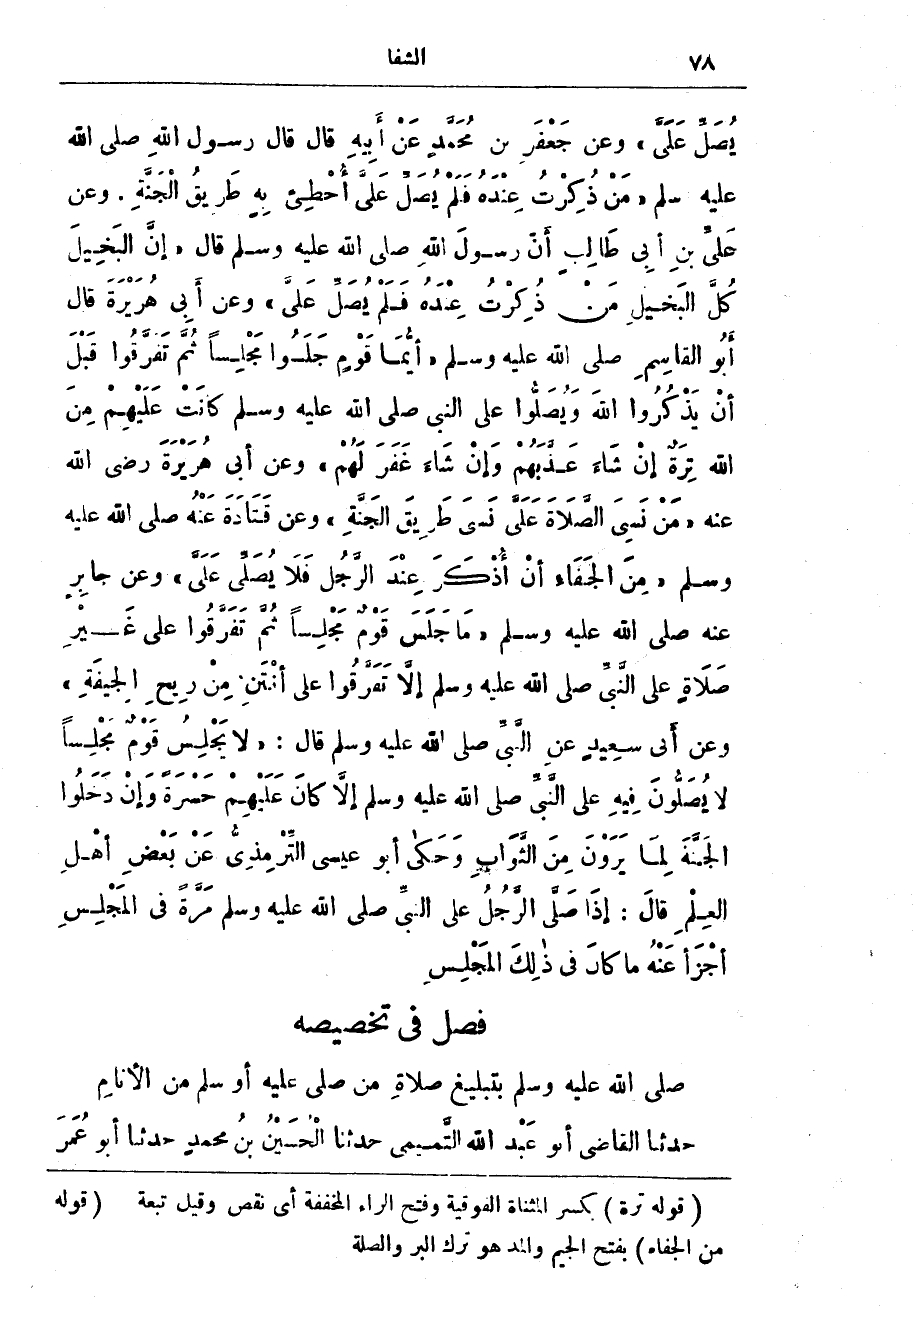 ٧٨ الشفا
يُصَلِّ عَلَيَّ» وعن جَعْفَرِ بن مُحَمَّدٍ عَنْ أَبِيهِ قال قال رسول اللهِ صلى الله
عليه سلم «مَنْ ذُكِرْتُ عِنْدَهُ فَلَم يُصَلِّ عَلَيَّ أُخْطِئَ بِهِ طَرِيقُ الْجَنَّةِ. وعن
عَلِيِّ بنِ أبى طَالِبٍ أنّ رسولَ اللهِ صلى الله عليه وسلم قال «إنَّ البَخِيلَ
كُلَّ البَخيلِ مَنْ ذُكِرْتُ عِنْدَهُ فَلَمْ يُصَلِّ عَلَيَّ» وعن أَبى هُرَيْرَةَ قال
أَبُو القاسِمِ صلى الله عليه وسلم «أيُّمَا قَوْمٍ جَلَسُوا مَجْلِساً ثُمَّ تَفَرَّقُوا قَبْلَ
أنْ يَذْكُرُوا اللهَ وَيُصَلُّوا على النبى صلى الله عليه وسلم كانَتْ عَلَيْهِمْ مِنَ
الله تِرَةٌ إنْ شَاءَ عَذَّبَهُمْ وَإنْ شَاءَ غَفَرَ لَهُمْ» وعن أبى هُرَيْرَةَ رضى الله
عنه «مَنْ نَسِىَ الصَّلاَةَ عَلَيَّ نَسِىَ طَرِيقَ الجَنَّةِ» وعن قَتَادَةَ عَنْهُ صلى الله عليه
وسلم «مِنَ الجَفَاء أنْ أُذْكَرَ عِنْدَ الرَّجُلِ فَلاَ يُصَلِّى عَلَيَّ» وعن جابِرٍ
عنه صلى الله عليه وسلم «مَا جَلَسَ قَوْمٌ مَجْلِساً ثُمَّ تَفَرَّقُوا على غَيْرِ
صَلاَةٍ على النَّبِيِّ صلى الله عليه وسلم إلاَّ تَفَرَّقُوا على أنْتَنِ مِنْ رِيحِ الجِيفَةِ»
وعن أَبى سعِيدٍ عنِ النَّبِيِّ صلى الله عليه وسلم قال : «لا يَجْلِسُ قَوْمٌ مَجْلِساً
لا يُصَلُّونَ فِيهِ على النَّبِيِّ صلى الله عليه وسلم إلاَّ كانَ عَلَيْهِمْ حَسْرَةً وَإنْ دَخَلُوا
الجَنَّةَ لِمَا يَرَوْنَ مِنَ الثَّوَابِ وَحَكَى أبو عيسى التِّرْمِذِىُّ عَنْ بَعْضِ أهْلِ
العِلْمِ قالَ : إذَا صَلَّى الرَّجُلُ على النبيِّ صلى الله عليه وسلم مَرَّةً فى المَجْلِسِ
أجْزَأَ عَنْهُ ما كانَ فى ذٰلِكَ المَجْلِسِ
فصل فى تخصيصه
صلى الله عليه وسلم بتبليغ صلاةِ من صلى عليه أو سلم من الأنامِ
حدثنا القاضى أبو عَبْدِ الله التَّمِيمى حدثنا الْحُسَيْنُ بنُ محمدٍ حدثنا أبو عُمَرَ
( قوله ترة ) بكسر المثناة الفوقية وفتح الراء المخففة أى نقص وقيل تبعة ( قوله
من الجفاء ) بفتح الجيم والمد هو ترك البر والصلة